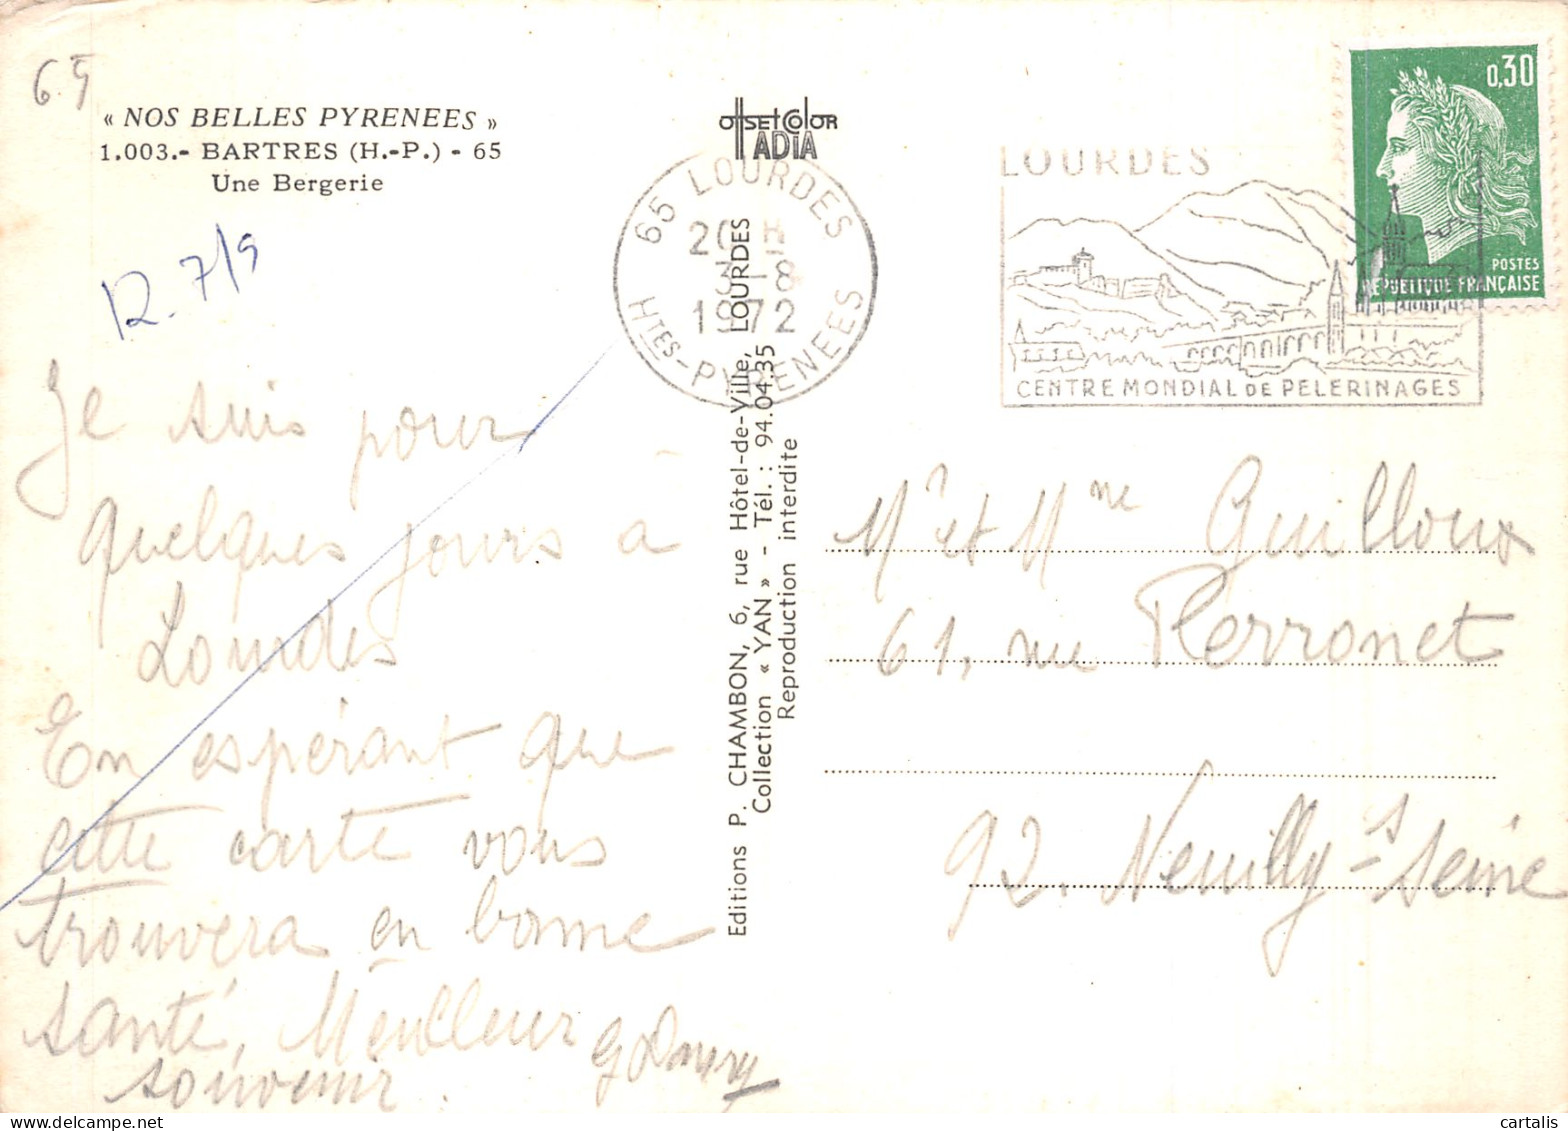 65
« NOS BELLES PYRENEES »
1.003.- BARTRES (H.-P.) - 65
Une Bergerie
R. 7/9
Je suis pour
quelques jours à
Lourdes
En espérant que
cette carte vous
trouvera en bonne
santé, Meilleur
souvenir.
OffsetColor
IADIA
65 LOURDES
20 H
31-8
1972
HTES-PYRENEES
Editions P. CHAMBON, 6, rue Hôtel-de-Ville, LOURDES
Collection « YAN » - Tél. : 94.04.35
Reproduction interdite
LOURDES
CENTRE MONDIAL DE PELERINAGES
0,30
POSTES
REPUBLIQUE FRANÇAISE
Mr et Mme Guilloux
61, rue Perronet
92. Neuilly-s Seine
cartalis